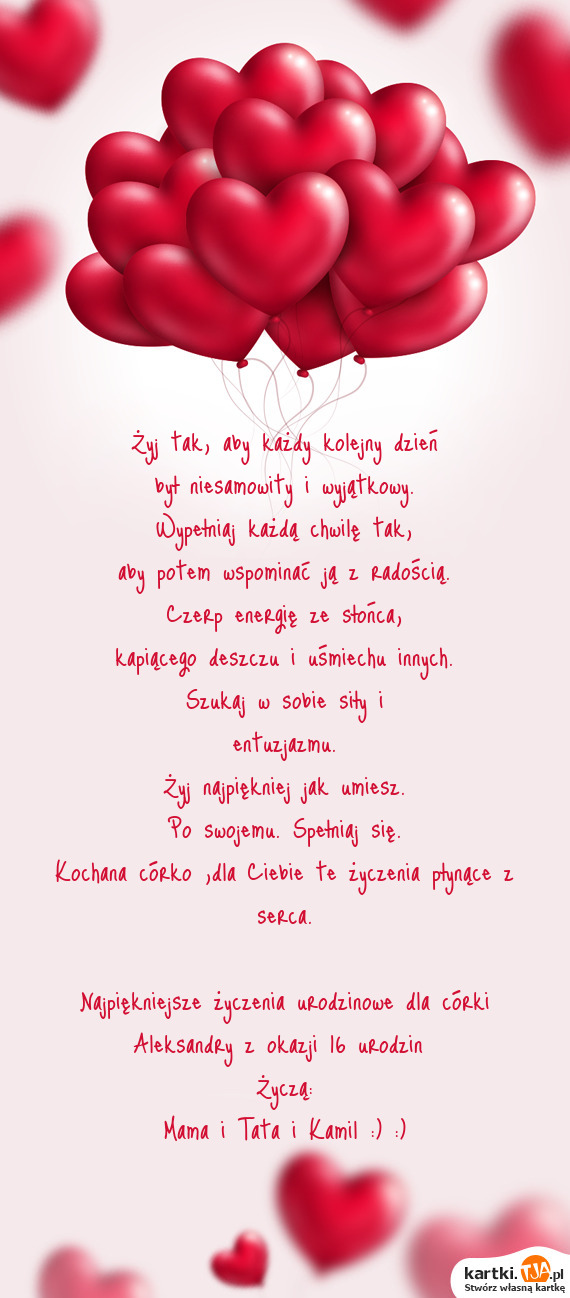 Żyj tak, aby każdy kolejny dzień
był niesamowity i wyjątkowy.
Wypełniaj każdą chwilę tak,
aby potem wspominać ją z radością.
Czerp energię ze słońca,
kapiącego deszczu i uśmiechu innych.
Szukaj w sobie siły i
entuzjazmu.
Żyj najpiękniej jak umiesz.
Po swojemu. Spełniaj się.
Kochana córko ,dla Ciebie te życzenia płynące z
serca.
Najpiękniejsze życzenia urodzinowe dla córki
Aleksandry z okazji 16 urodzin
Życzą:
Mama i Tata i Kamil :) :)
kartki.TJA.pl
Stwórz własną kartkę